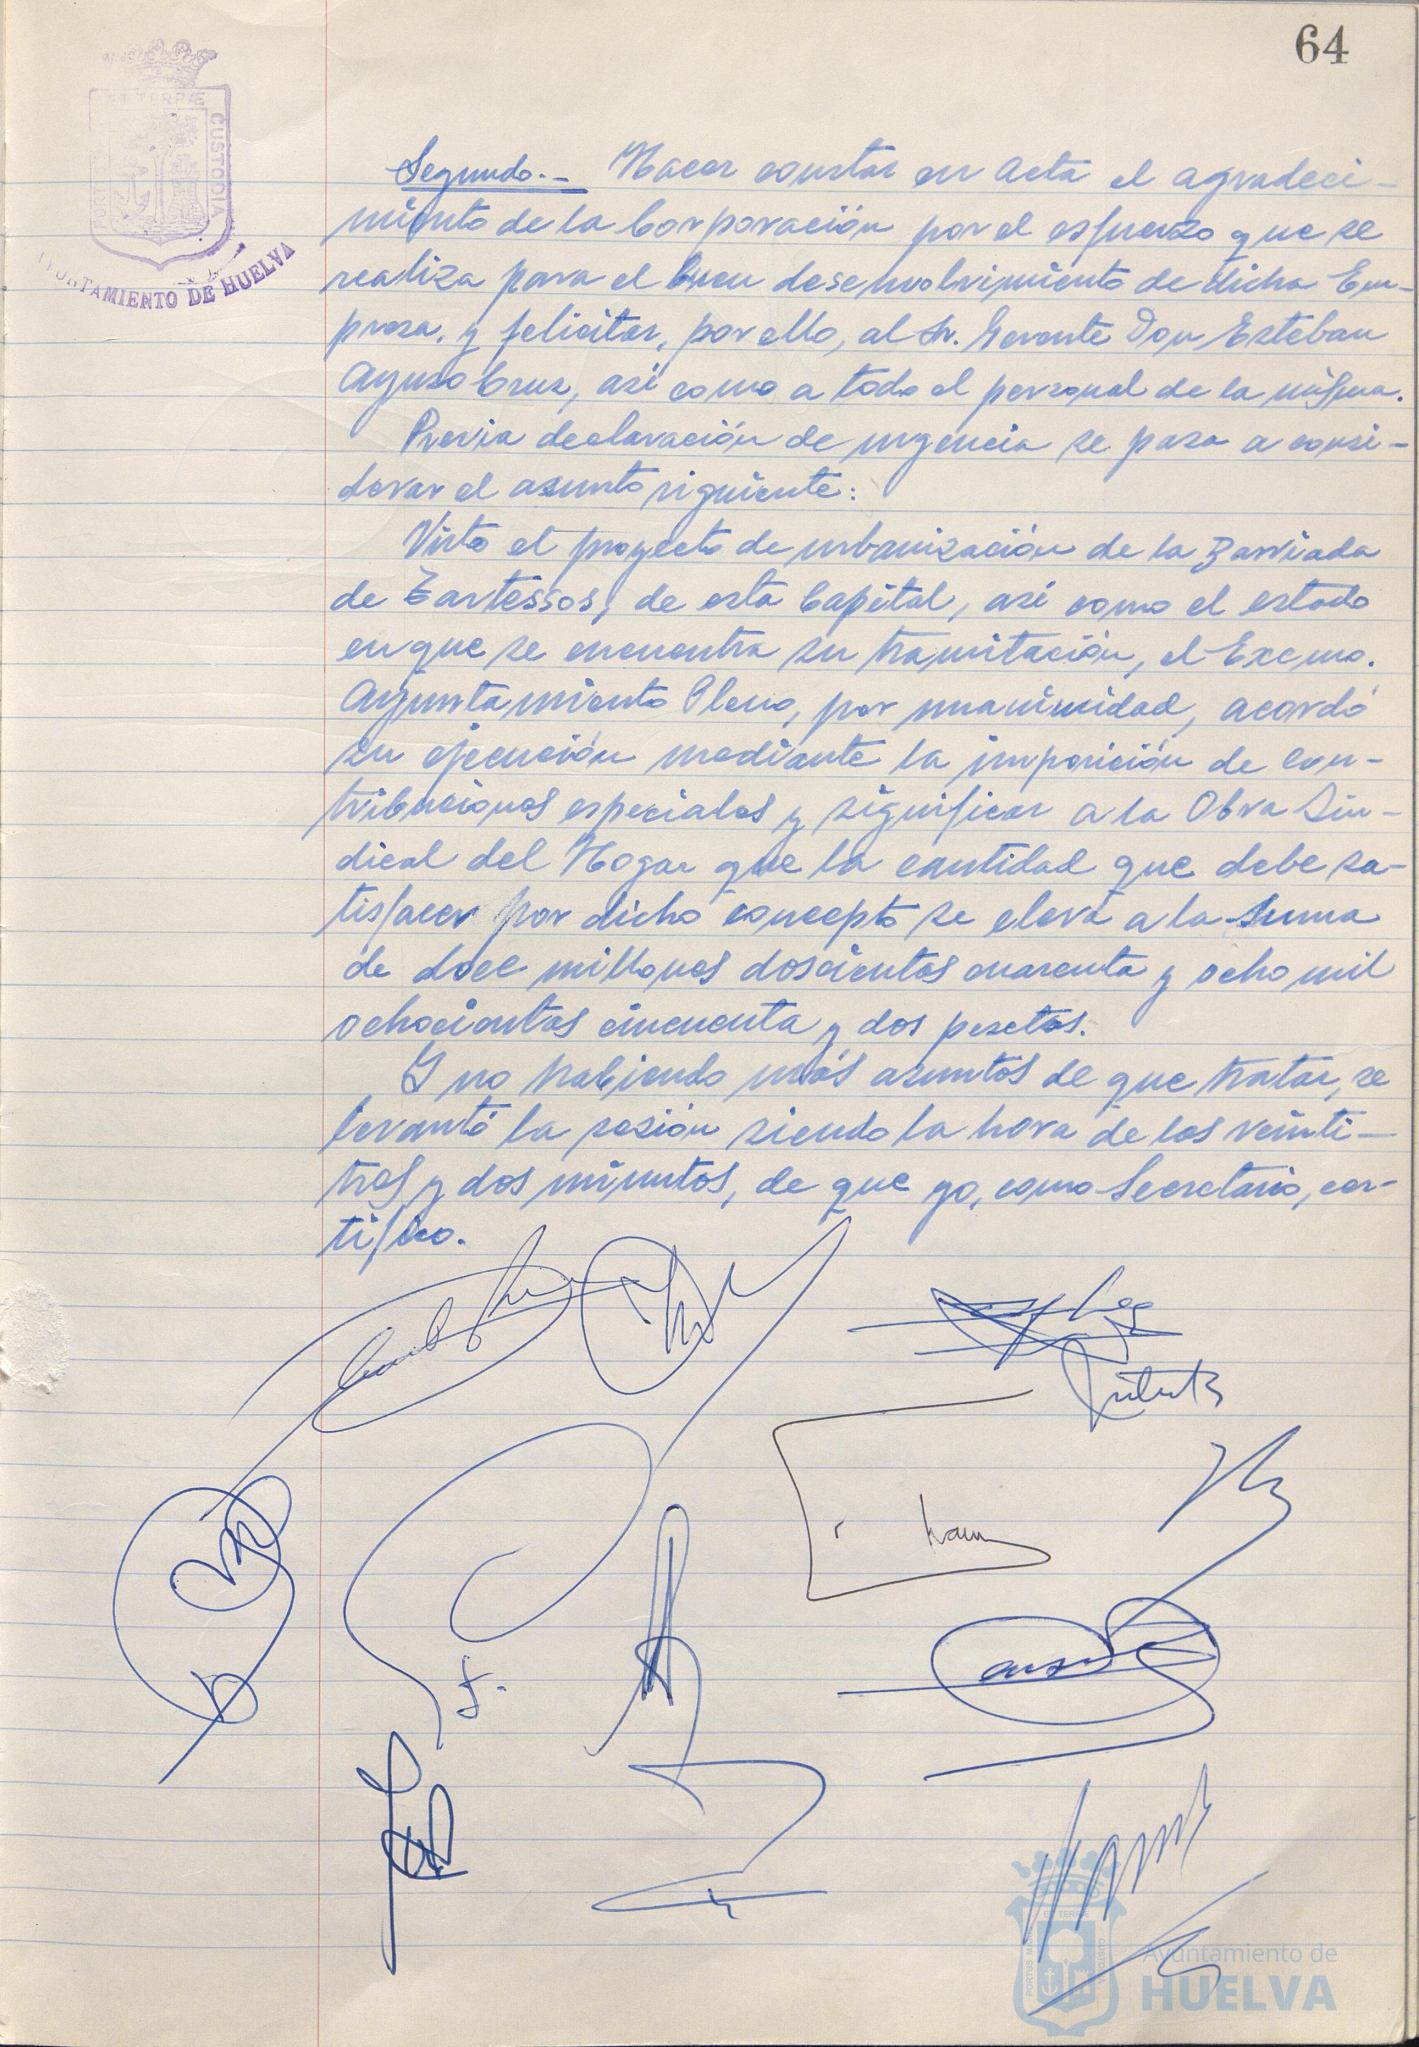 64
ET TERRÆ
CUSTODIA
AYUNTAMIENTO DE HUELVA
Segundo.- Hacer constar en Acta el agradeci-
miento de la Corporación por el esfuerzo que se
realiza para el buen desenvolvimiento de dicha Em-
presa, y felicitar, por ello, al Sr. Gerente Don Esteban
Ayuso Cruz, así como a todo el personal de la misma.
Previa declaración de urgencia se pasa a consi-
derar el asunto siguiente:
Visto el proyecto de urbanización de la Barriada
de Tartessos, de esta Capital, así como el estado
en que se encuentra su tramitación, el Excmo.
Ayuntamiento Pleno, por unanimidad, acordó
su ejecución mediante la imposición de con-
tribuciones especiales y significar a la Obra Sin-
dical del Hogar que la cantidad que debe sa-
tisfacer por dicho concepto se eleva a la suma
de doce millones doscientas cuarenta y ocho mil
ochocientas cincuenta y dos pesetas.
Y no habiendo más asuntos de que tratar, se
levantó la sesión siendo la hora de las veinti-
tres y dos minutos, de que yo, como Secretario, cer-
tifico.
Ayuntamiento de
HUELVA